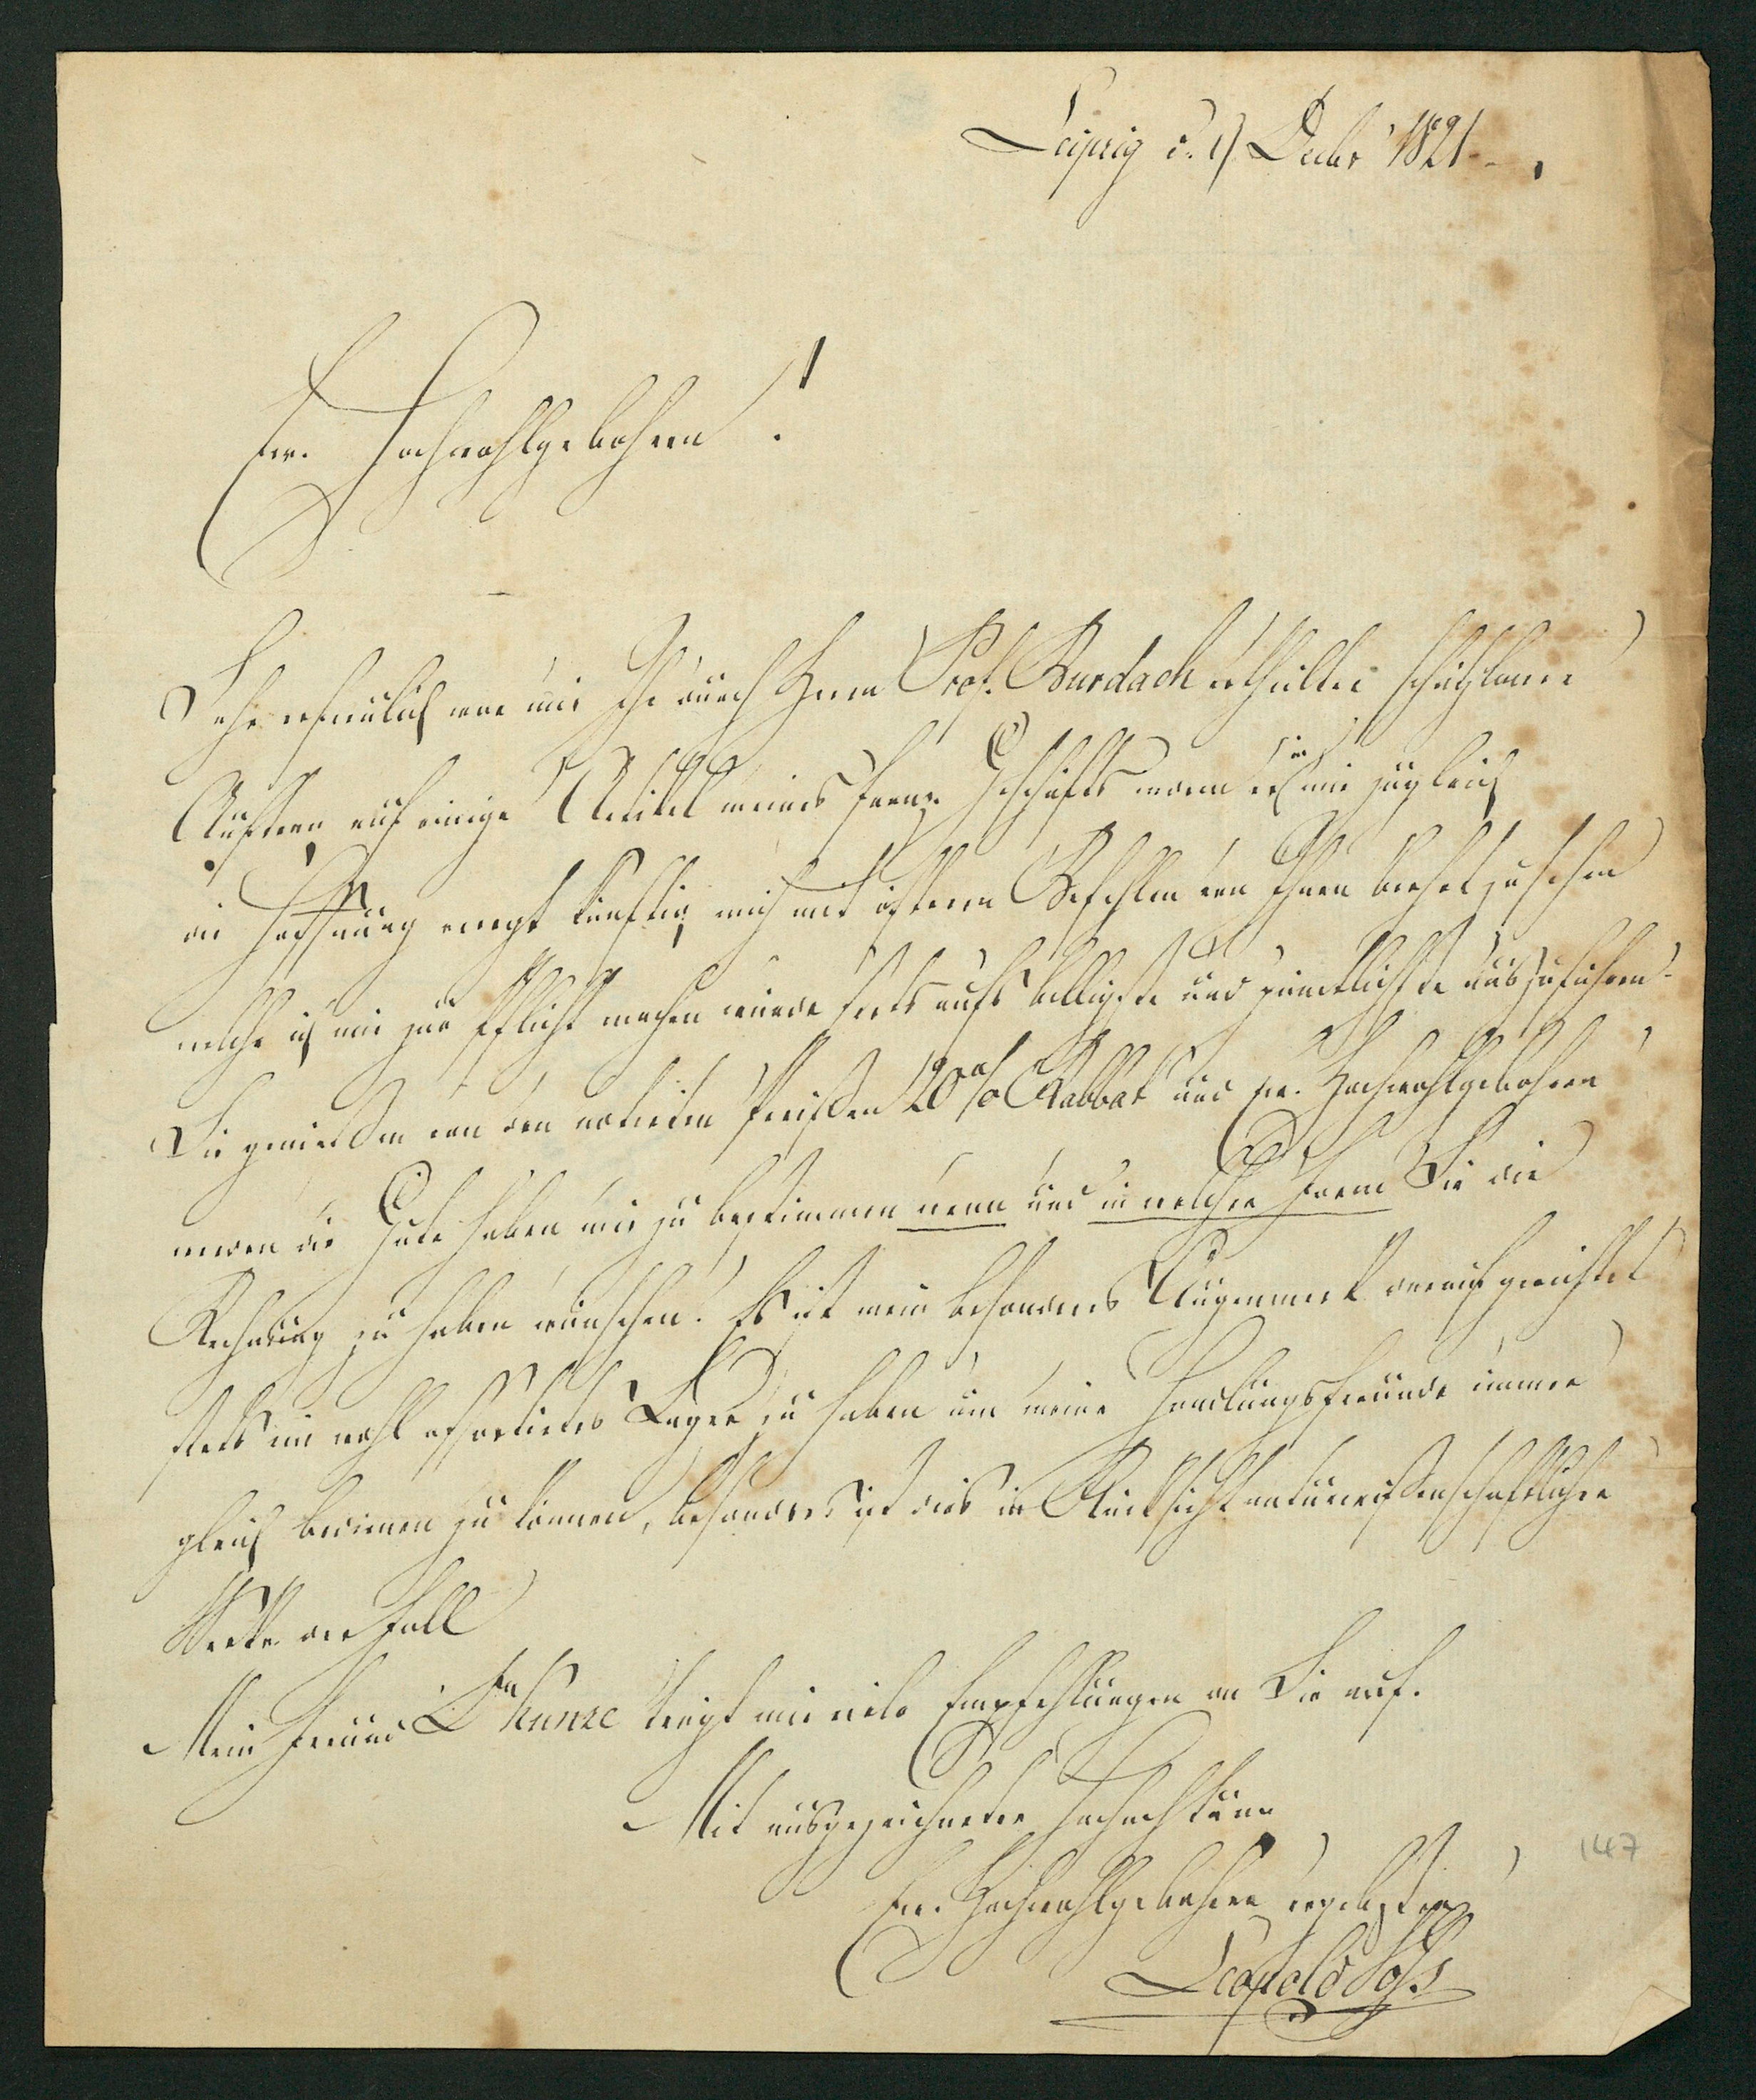 Leipzig d. Decbr 1821
Ew. Hochwohlgebohren!
Sehr erfreulich war mir Ihr durch Herrn Prof. Burdach ertheilter schätzbarer
Auftrag auf einige Artikel meines franz. Geschäfts indem er mir zugleich
die Hoffnung erregt künftig mich mit öftern Befehlen von Ihnen beehrt zu sehen
welche ich mir zur Pflicht machen würde stets aufs billigste und pünctlichste auszuführen.
Sie genießen von den notirten Preißen 20 % Rabbat und Ew. Hochwohlgebohren
werden die Güte haben mir zu bestimmen wenn und in welcher Form Sie die
Rechnung zu haben wünschen. Es ist mein besonderes Augenmerk darauf gerichtet
stets ein wohl assortirtes Lager zu haben um meine Handlungsfreunde immer
gleich bedienen zu können, besonders ist dies in Rücksicht naturwissenschaftlicher
Werke der Fall
Mein Freund Kunze trägt mir viele Empfehlungen an Sie auf.
Mit ausgezeichneter Hochachtung
Ew. Hochwohlgebohren ergebenster
Leopold Voß
147